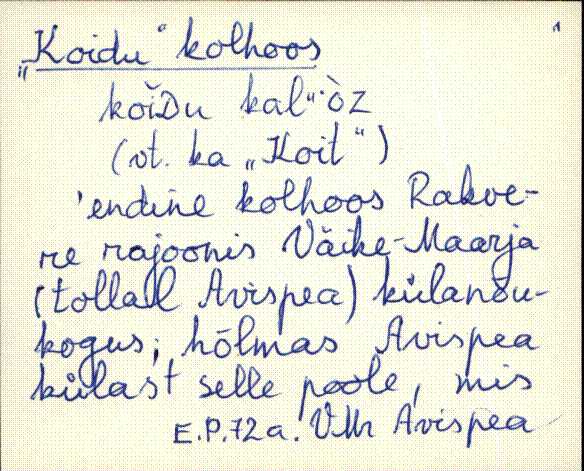 1
„Koidu“ kolhoos
koiDu kal“òz
(vt. ka „Koit“)
'endine kolhoos Rakve-
re rajoonis Väike-Maarja
(tollal Avispea) külanõu-
kogus; hõlmas Avispea
külast selle poole, mis
E.P.72a. VMr Avispea